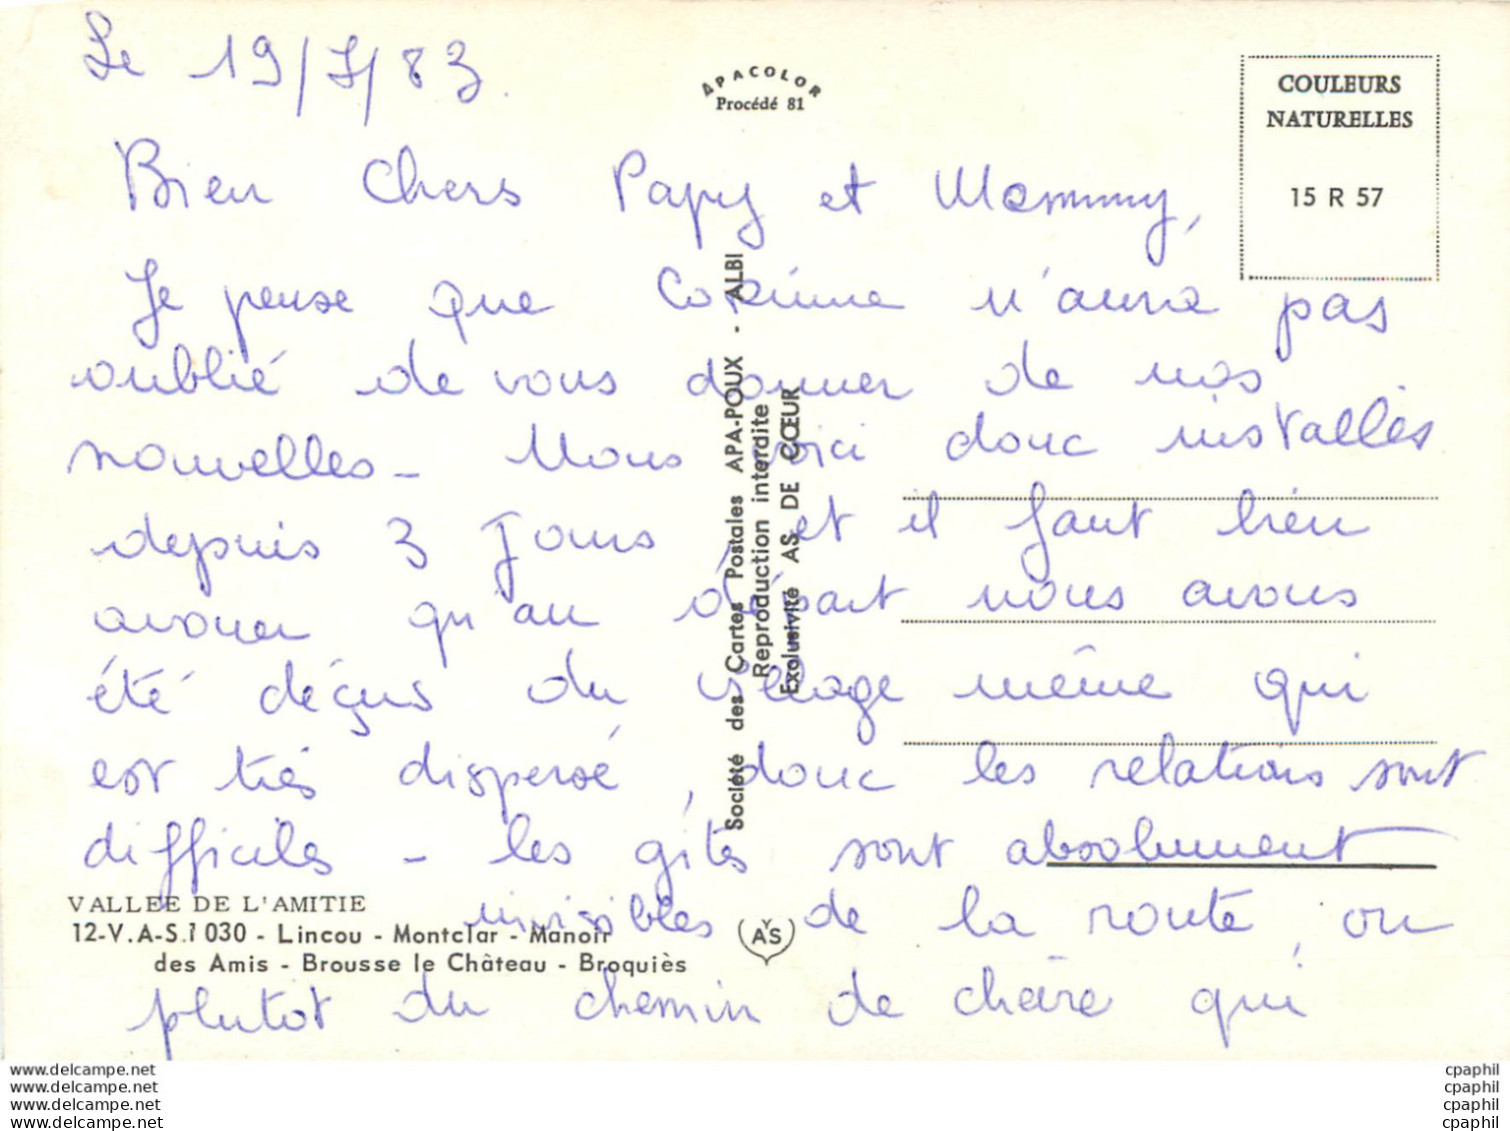 Le 19/7/83.
APACOLOR
Procédé 81
COULEURS
NATURELLES
15 R 57
Bien Chers Papy et Mammy,
Je pense que Corinne n'aura pas
oublié de vous donner de nos
nouvelles - Nous voici donc installés
depuis 3 Jours, et il faut bien
avouer qu'au départ nous avons
été déçus du village même qui
est très dispersé, donc les relations sont
difficiles - les gîtes sont absolument
invisibles de la route, ou
plutôt du chemin de chèvre qui
Société des Cartes Postales APA-POUX - ALBI
Reproduction interdite
Exclusivité AS DE CŒUR
VALLEE DE L'AMITIE
12-V.A-S.1030 - Lincou - Montclar - Manoir
des Amis - Brousse le Château - Broquiès
AYS
www.delcampe.net
www.delcampe.net
www.delcampe.net
www.delcampe.net
cpaphil
cpaphil
cpaphil
cpaphil